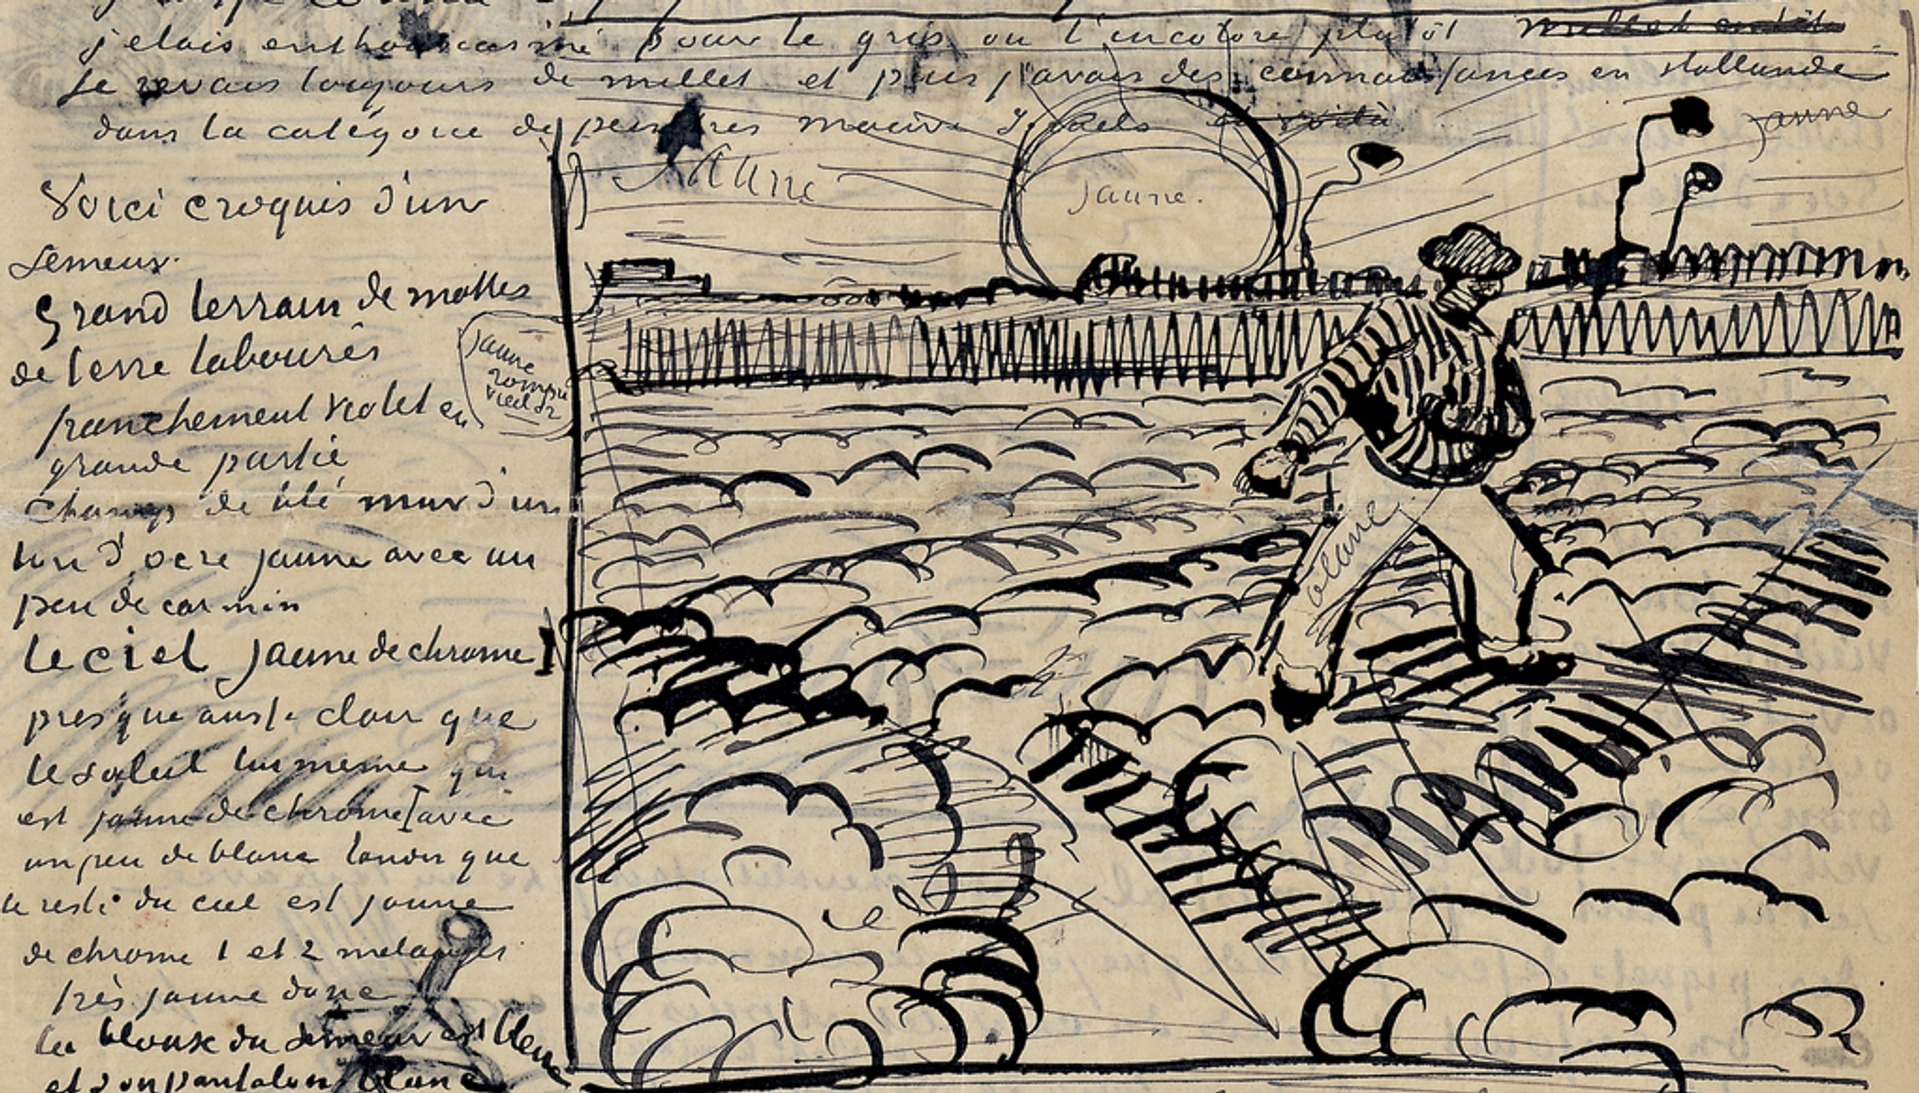 j'etais enthousiasmé pour le gris ou l'incolore plutôt
je revais toujours de millet et puis j'avais des connaissances en Hollande
dans la catégorie de peintres mauve Israels
Voici croquis d'un
semeur.
Grand terrain de mottes
de terre labourés
franchement violet en
grande partie
Champ de blé mur d'un
ton d'ocre jaune avec un
peu de carmin
le ciel jaune de chrome 1
presque aussi clair que
le soleil lui meme qui
est jaune de chrome 1 avec
un peu de blanc tandis que
le reste du ciel est jaune
de chrome 1 et 2 melanges
très jaune donc
La blouse du semeur est bleue
et son pantalon blanc
Jaune
jaune.
jaune
jaune
rompu
vieil or
blanc